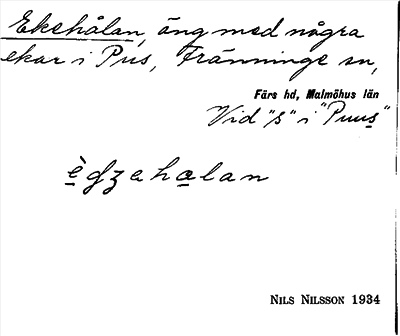 Ekehålan, äng med några
ekar i Pus, Fränninge sn,
Färs hd, Malmöhus län
Vid "s" i "Puus"
ègzahalan
NILS NILSSON 1934